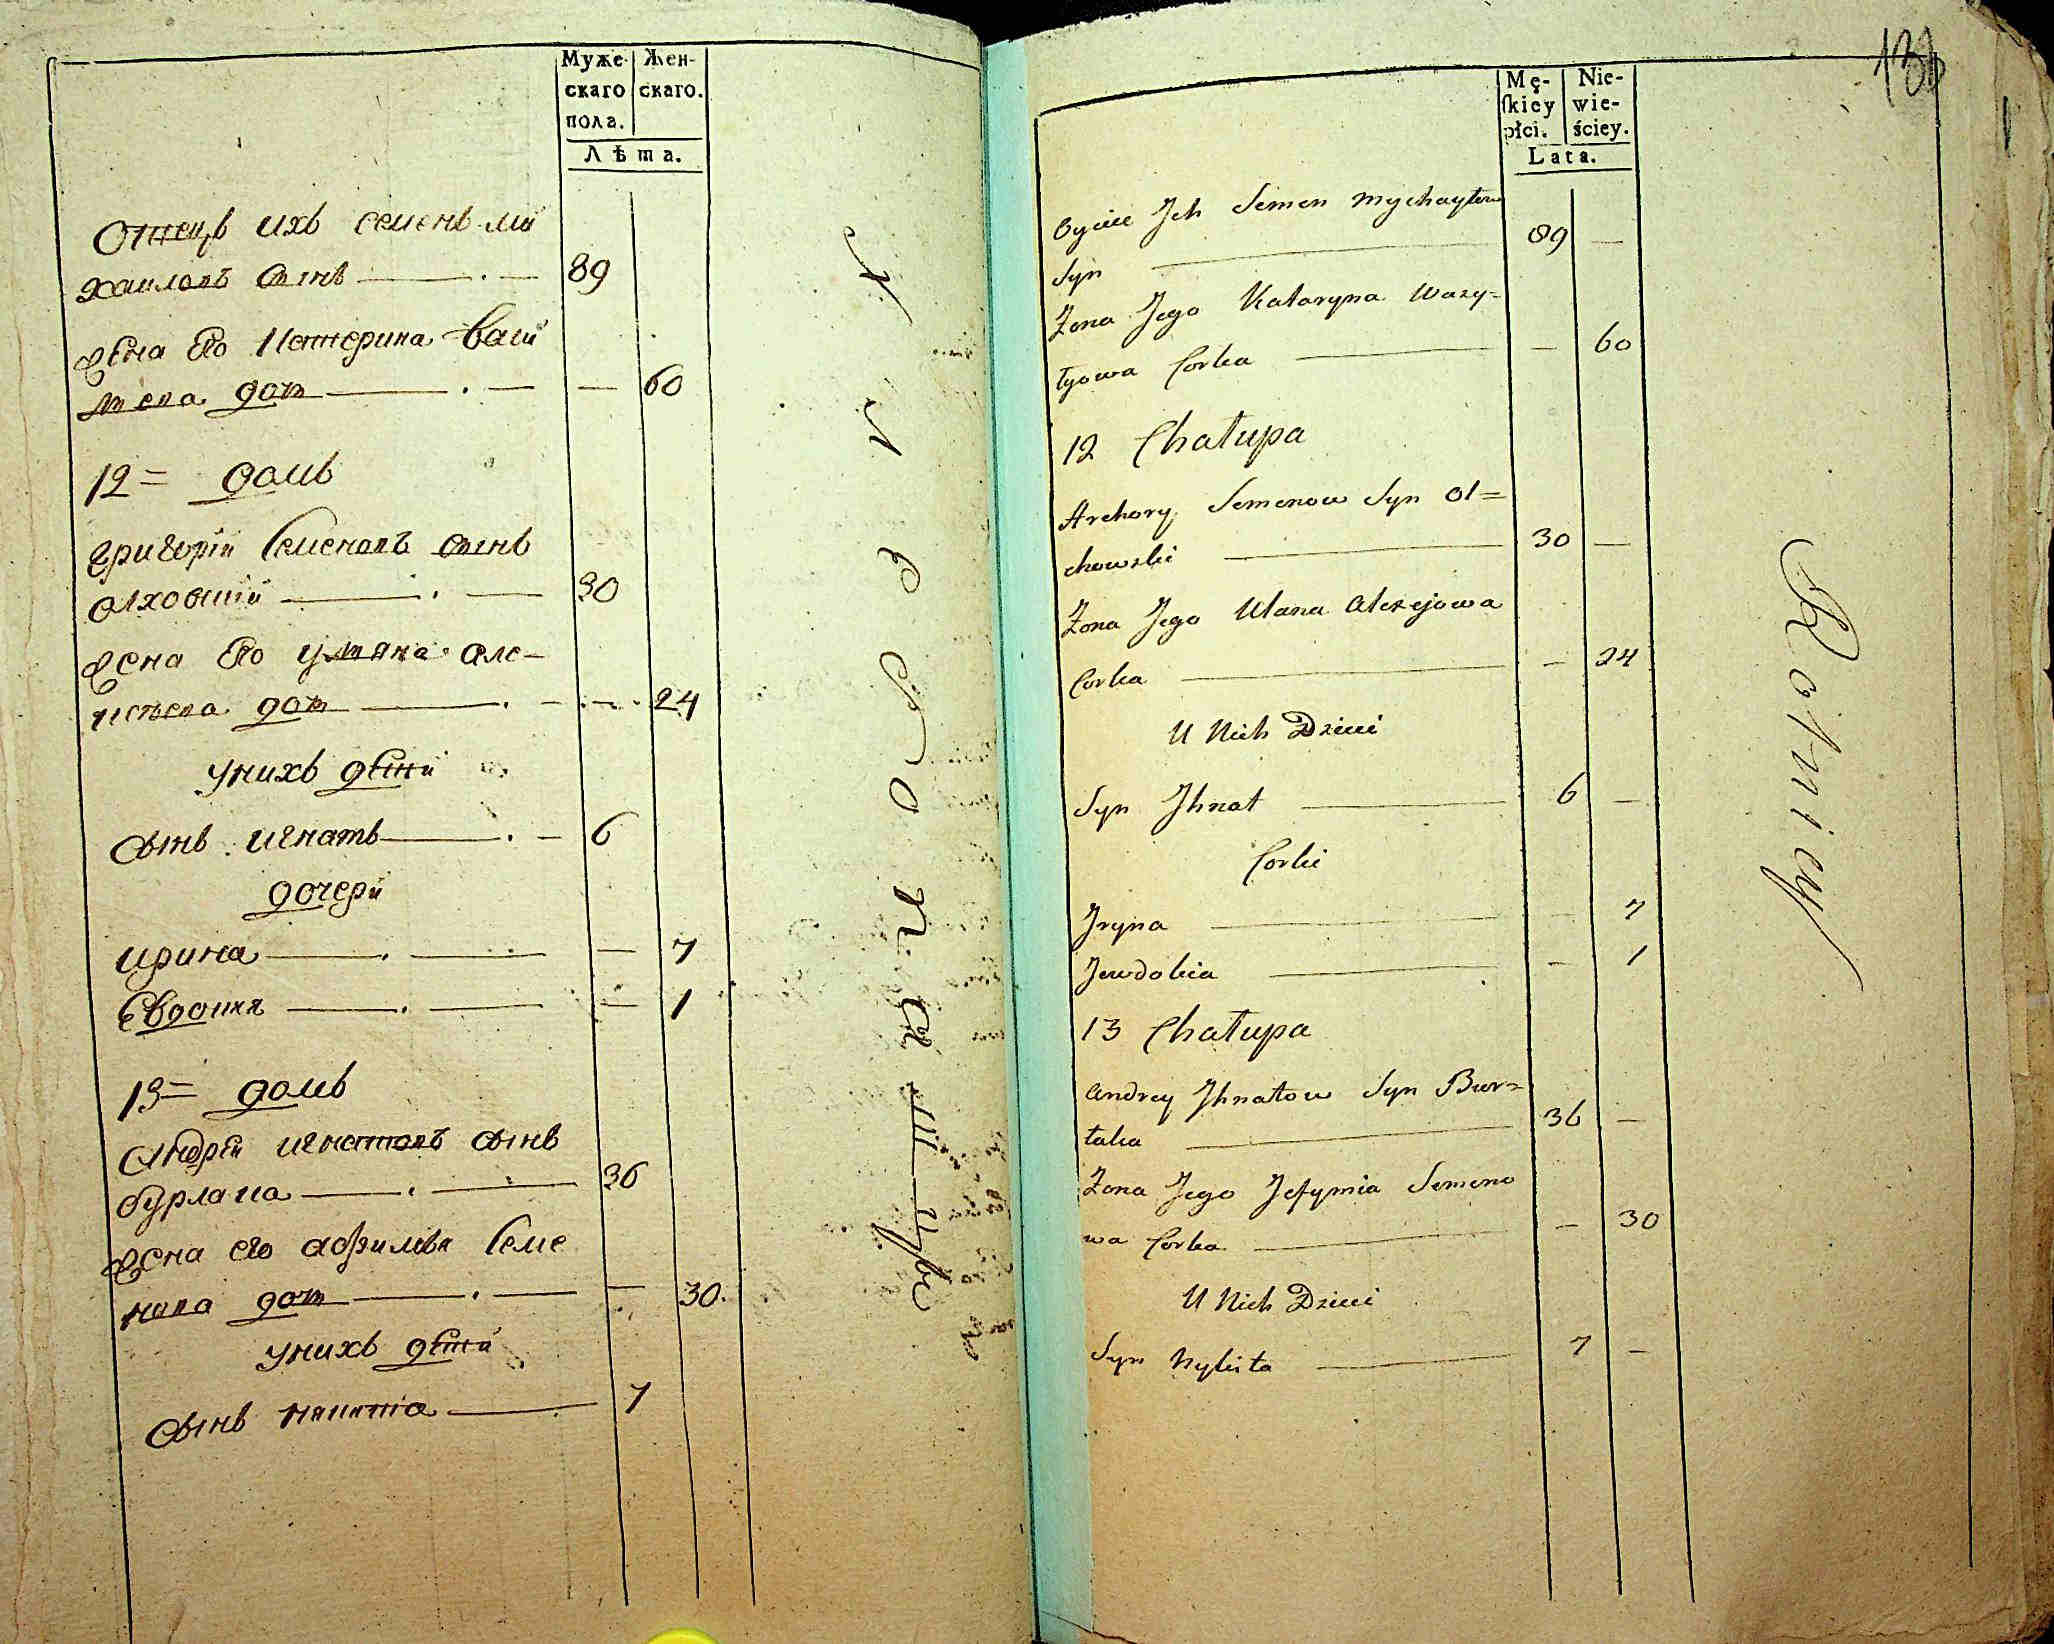 Муже- Жен-
скаго скаго.
пола.
Лѣта.
Отецъ ихъ семенъ ми
хаиловъ сынъ — 89
жена Его Катерина Васи
лиева доч — — 60
12 = домъ
григорїи Семеновъ сынъ
олховскїй — 30
жена Его уляна Але-
ксѣева доч — — 24
у нихъ дѣти
сынъ игнатъ — 6
дочери
ирина — — 7
Евдокия — — 1
13 = домъ
Андрѣй игнатовъ сынъ
бурлака — 36
жена его афимья Семе
нова доч — — 30.
у нихъ дѣти
сынъ никита — 7
131
Mę- Nie-
skiey wie-
płci. ściey.
Lata.
Oyciec Jch Semen Mychayłow
Syn — 89 —
Żona Jego Kataryna Wasy=
lyowa Corka — — 60
12 Chałupa
Hrehory Semenow Syn Ol=
chowski — 30 —
Żona Jego Ulana Alexejowa
Corka — — 24
U Nich Dzieci
Syn Jhnat — 6 —
Corki
Jryna — — 7
Jewdokia — — 1
13 Chałupa
Andrey Jhnatow Syn Bur=
łaka — 36 —
Żona Jego Jefymia Semeno
wa Corka — — 30
U Nich Dzieci
Syn Nykita — 7 —
Rolnicy